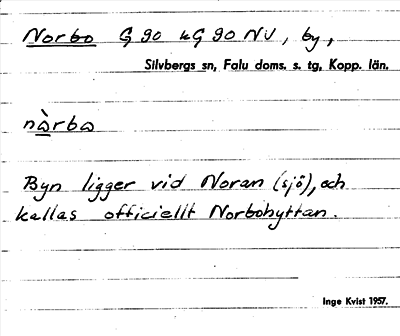 Norbo G 90 kG 90 NV, by,
Silvbergs sn, Falu doms. s. tg, Kopp. län.
nàrba
Byn ligger vid Noran (sjö), och
kallas officiellt Norbohyttan.
Inge Kvist 1957.